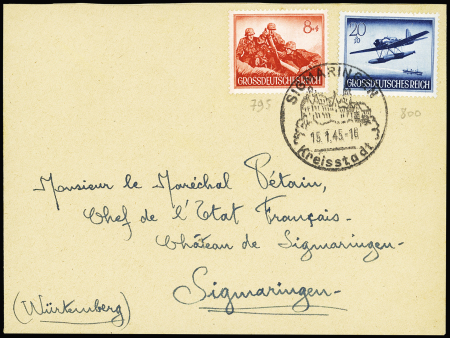 8+4
GROSSDEUTSCHES REICH
20
GROSSDEUTSCHES REICH
795
800
SIGMARINGEN
15.1.45-16
Kreisstadt
Monsieur le Maréchal Pétain,
Chef de l'Etat Français-
Château de Sigmaringen-
Sigmaringen-
(Würtemberg)